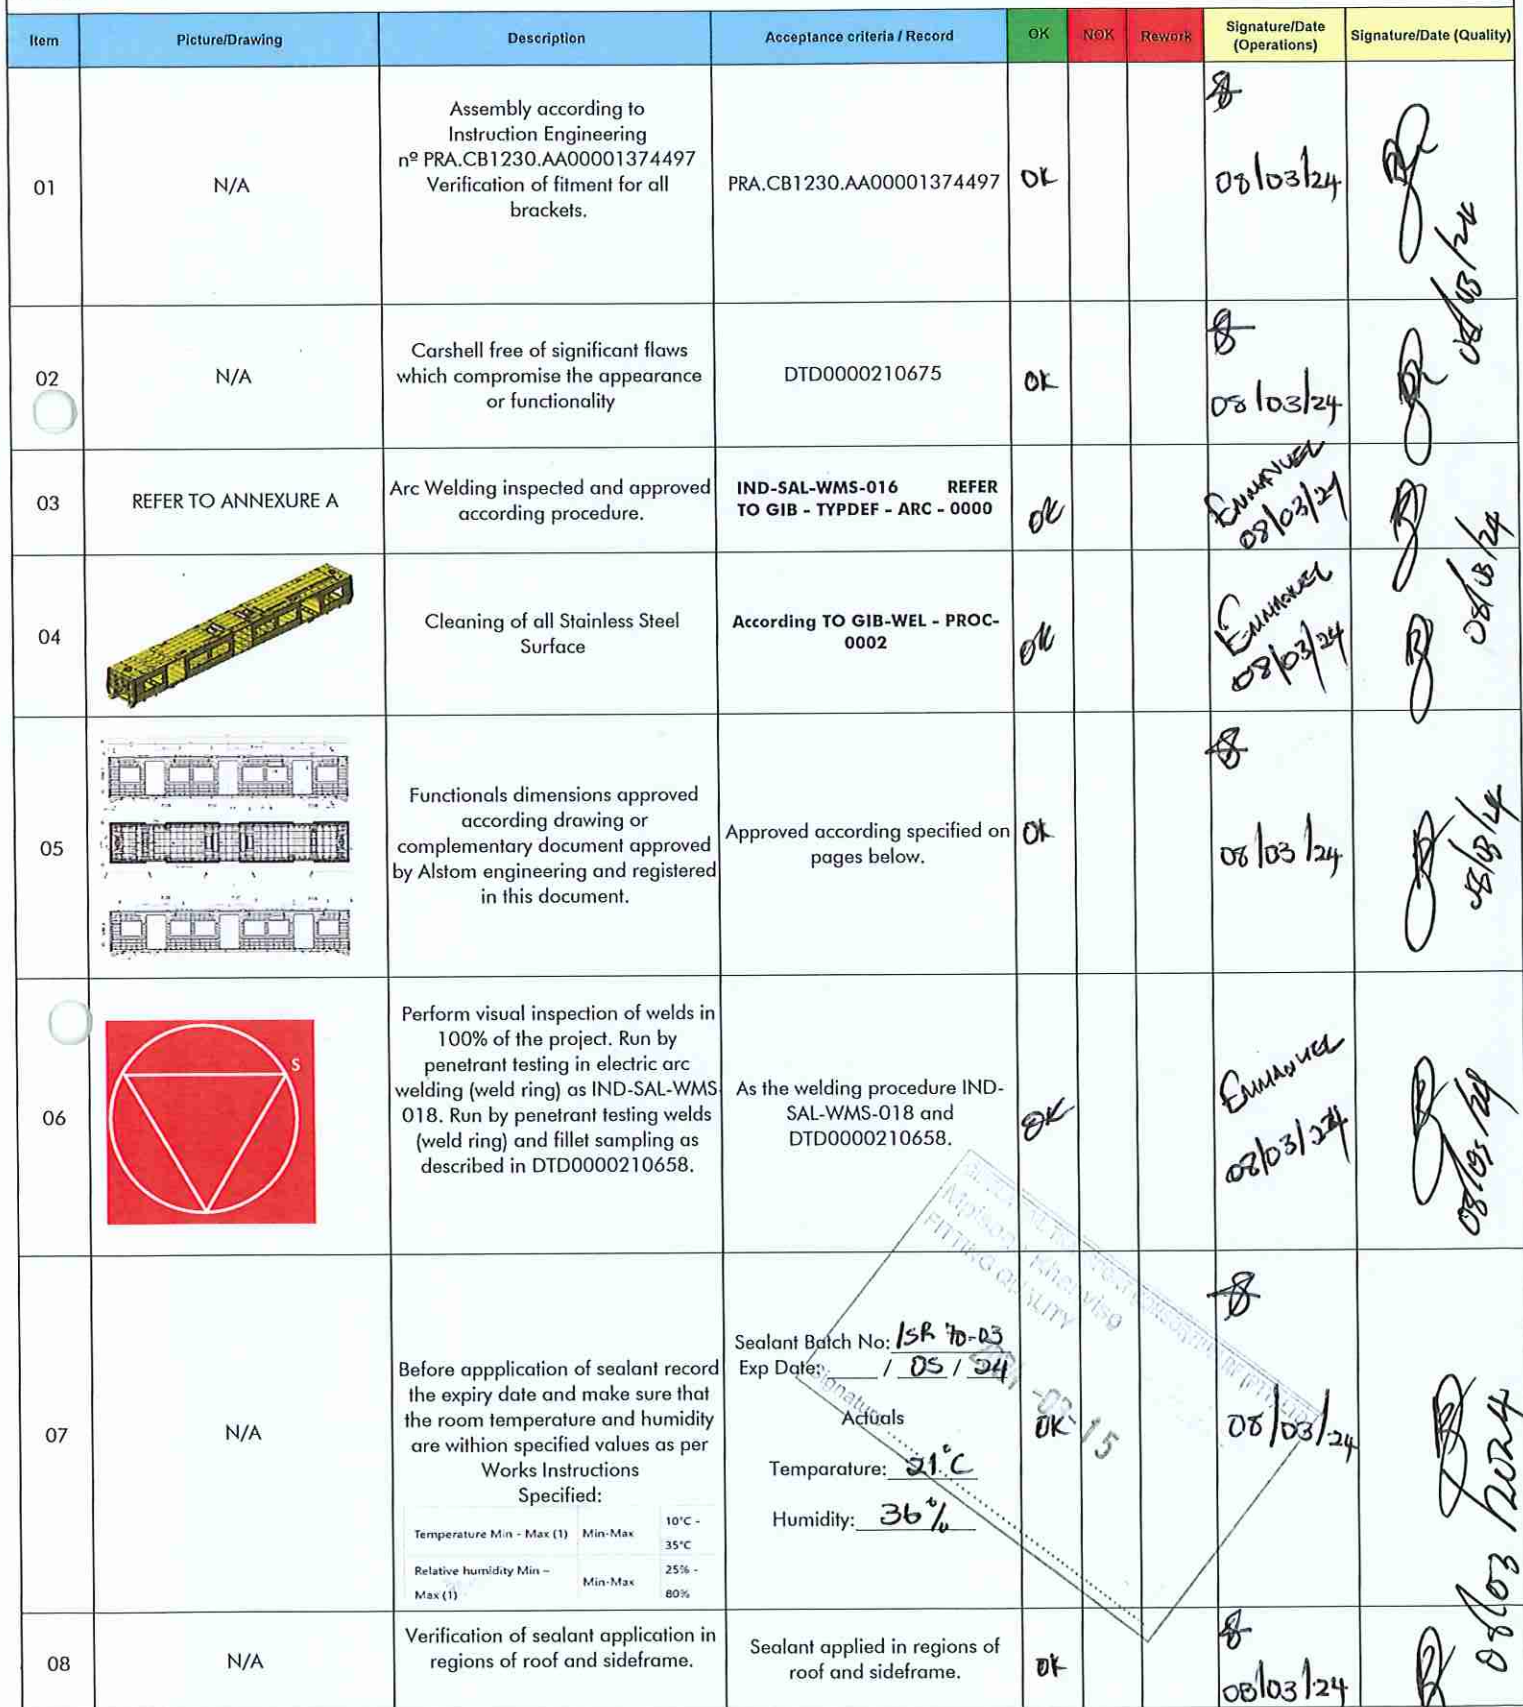 Item Picture/Drawing Description Acceptance criteria / Record OK NOK Rework Signature/Date (Operations) Signature/Date (Quality)
01
N/A
Assembly according to
Instruction Engineering
nº PRA.CB1230.AA00001374497
Verification of fitment for all
brackets.
PRA.CB1230.AA00001374497
OK
08/03/24
08/03/24
02
N/A
Carshell free of significant flaws
which compromise the appearance
or functionality
DTD0000210675
OK
08/03/24
03
REFER TO ANNEXURE A
Arc Welding inspected and approved
according procedure.
IND-SAL-WMS-016 REFER
TO GIB - TYPDEF - ARC - 0000
OK
EMMANUEL
08/03/24
08/03/24
04
Cleaning of all Stainless Steel
Surface
According TO GIB-WEL - PROC-
0002
OK
EMMANUEL
08/03/24
05
Functionals dimensions approved
according drawing or
complementary document approved
by Alstom engineering and registered
in this document.
Approved according specified on
pages below.
OK
08/03/24
08/03/24
06
S
Perform visual inspection of welds in
100% of the project. Run by
penetrant testing in electric arc
welding (weld ring) as IND-SAL-WMS-
018. Run by penetrant testing welds
(weld ring) and fillet sampling as
described in DTD0000210658.
As the welding procedure IND-
SAL-WMS-018 and
DTD0000210658.
OK
EMMANUEL
08/03/24
08/03/24
07
N/A
Before appplication of sealant record
the expiry date and make sure that
the room temperature and humidity
are withion specified values as per
Works Instructions
Specified:
Temperature Min - Max (1) Min-Max 10°C -
35°C
Relative humidity Min –
Max (1) Min-Max 25% -
80%
Sealant Batch No: ISR 70-03
Exp Date: / 05 / 24
Actuals
Temparature: 21°C
Humidity: 36%
OK
08/03/24
08/03/2024
FITTING QUALITY
Signature
-03-15
08
N/A
Verification of sealant application in
regions of roof and sideframe.
Sealant applied in regions of
roof and sideframe.
OK
08/03/24